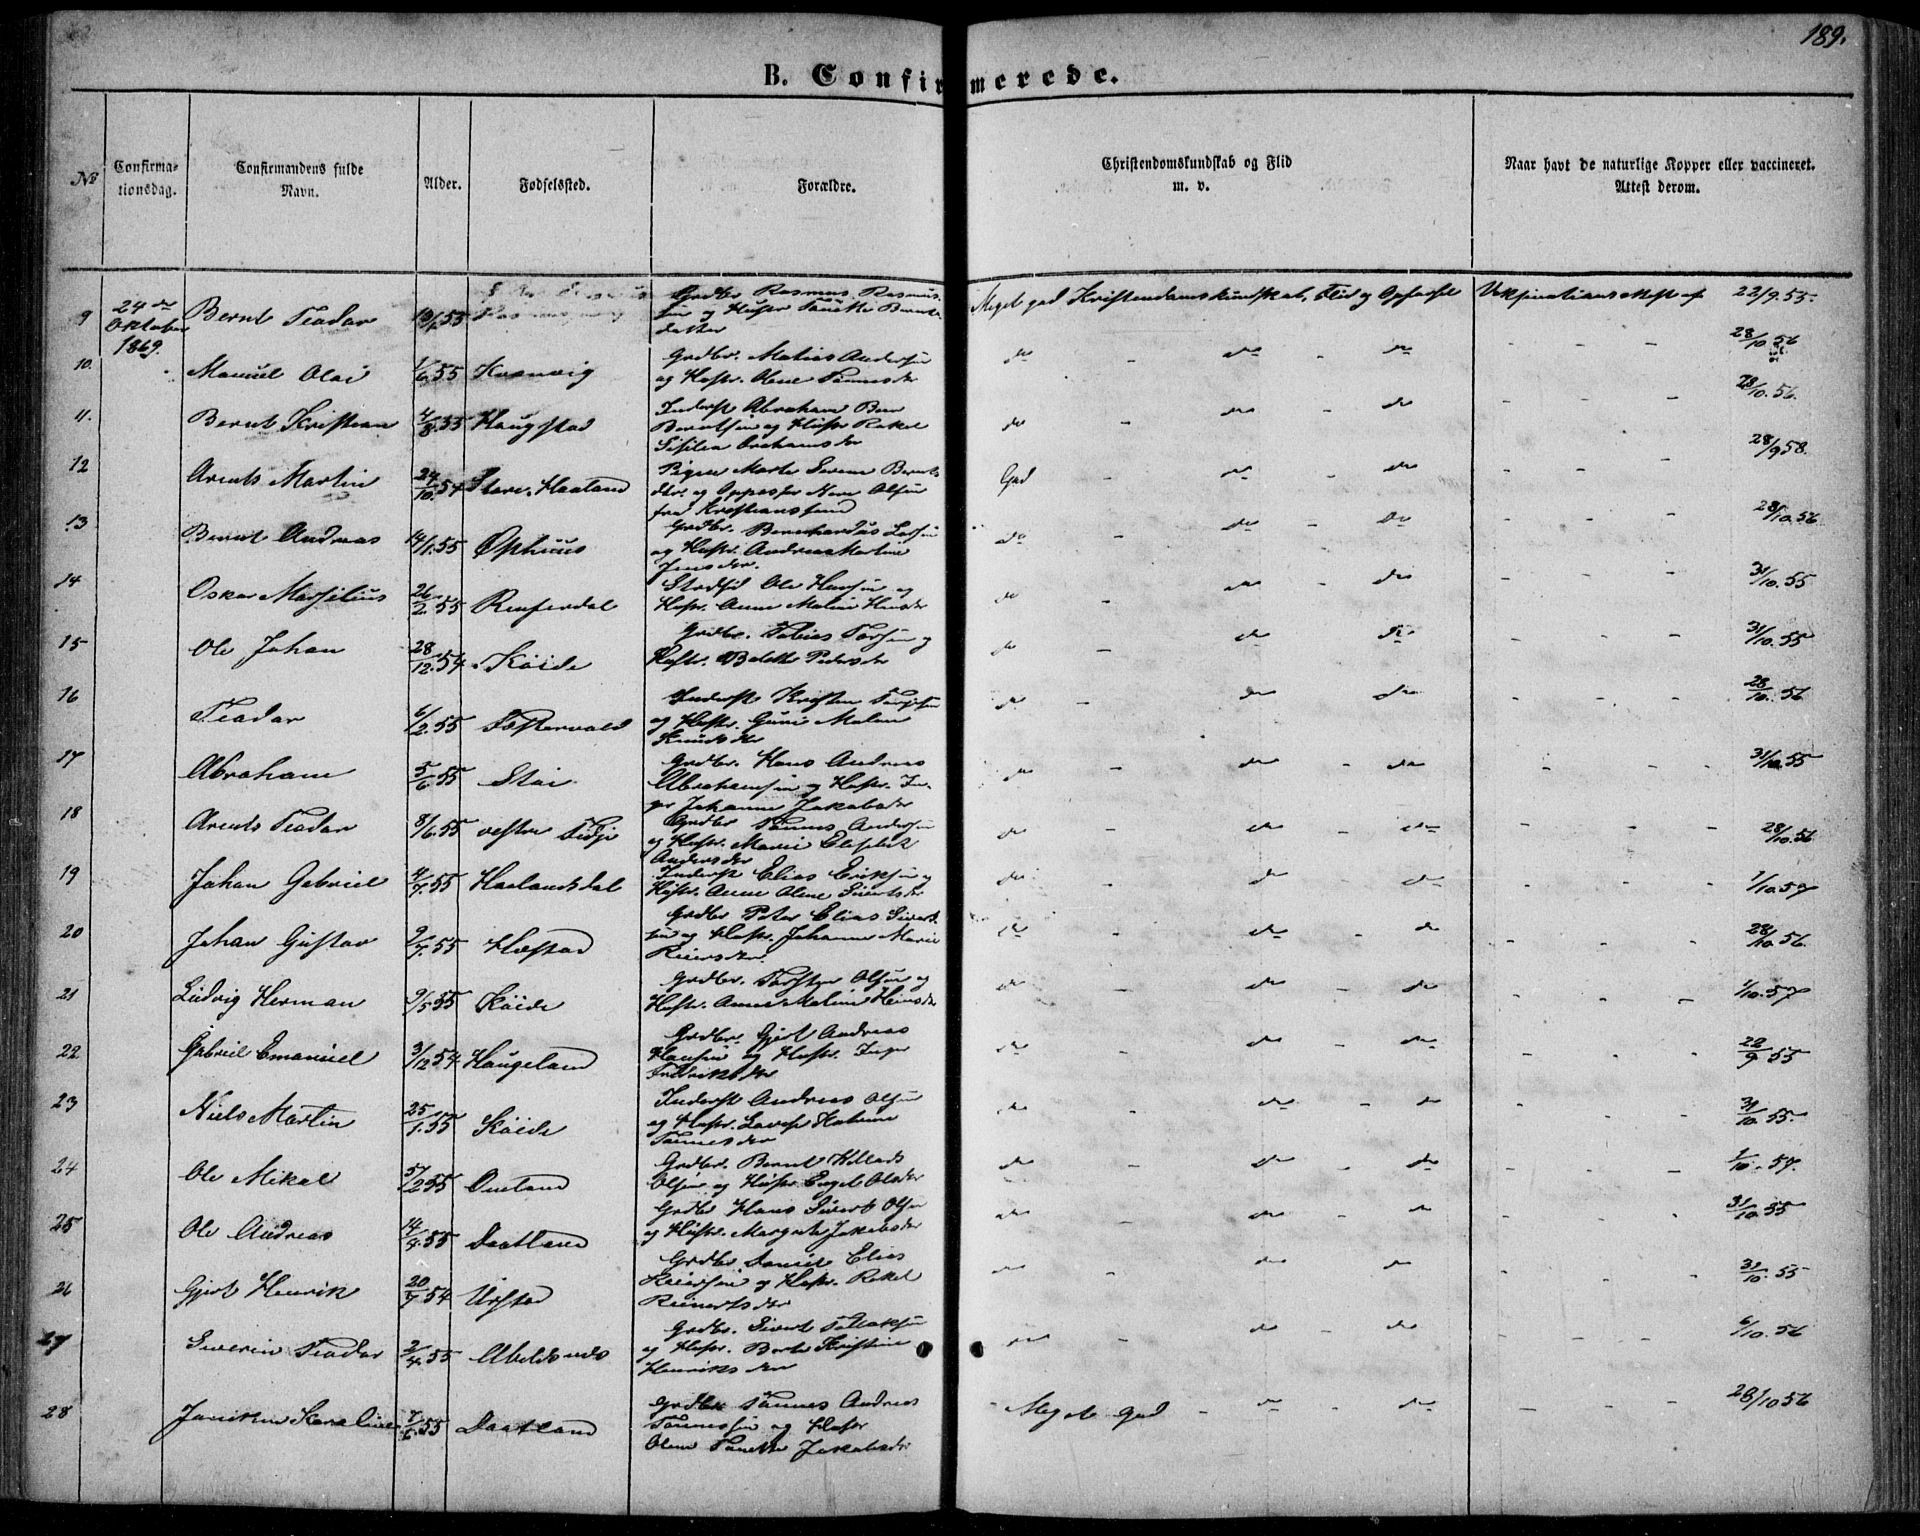 189.
B. Confirmerede.
No
Confirma-
tionsdag.
Confirmandens fulde
Navn.
Alder.
Fødselssted.
Forældre.
Christendomskundskab og Flid
m. v.
Naar havt de naturlige Kopper eller vaccineret.
Attest derom.
9 24de Oktober 1869. Bernt Teodor 55 Grdbr Rasmus Rasmus-
sen og Hustr Tonette Bernts-
datter Meget god Kristendomskundskab, Flid og Opførsel Vaksinationsattest af 22/9.55
10. Manuel Olai 1/6.55 Kvanvig Grdbr. Matias Andersen
og Hustr. Olene Tønnesdr do - do - do - - - 28/10 56
11. Bernt Kristian 4/8.55 Haugstad Inderst Abraham Bern
Berntsen og Hustr Rakel
Sisilia do - do - do - - - 28/10.56.
12 Arents Martin 24/10.54 Store Haaland Pigen Marte Serene Bernts
dtr. og Oppasser Nere Olsen
fra Kristianssund God - do - do - - - 28/9 58.
13 Bernt Andreas 14/1.55 Øphuus Grdbr. Bernhardus Larsen
og Hustr. Andrea Martine
Jensdtr. do do - do - - - 28/10.56
14 Oskar Marselius 26/2.55 Renserdal Ole Hansen og
Hustr. Anne Maline Hansdtr do - do - do - - - 31/10.55
15 Ole Johan 28/12.54 Køide Grdbr. Tobias Torsen og
Hustr. Belette Pedersdtr do - do do - - - 31/10.55
16 Teodor 6/2.55 Inderst Kristen Torjesen
og Hustr. Guri Malene
Knudsdtr do - do - do - - - 28/10.56
17 Abraham 5/6.55 Stoi Grdbr. Hans Andreas
Abrahamsen og Hustr. In-
ger Johanne Jakobsdtr do - do - do - - - 31/10.55
18 Arents Teodor 8/6.55 vestre Tidje Grdbr Tønnes Andersen
og Hustr. Marie Elisabet
Andersdtr do - do - do - - - 28/10.56
19 Johan Gabriel 4/7.55 Haalandsdal Inderst Elias Eriksen og
Hustr. Anne Olene Sivertsdtr do - do - do - - - 1/10.57
20 Johan Gustav 9/7.55 Hæstad Grdbr Peter Elias Sivert-
sen og Hustr. Johanne Marie
Reiersdtr. do - do - do - - - 28/10 56.
21 Ludvig Herman 9/5 55 Køide Grdbr. Torsten Olsen og
Hustr. Anne Maline Hansdtr do - do - do - - - 1/10.57
22 Gabriel Emanuel 3/12 54 Haugeland Grdbr. Gjert Andreas
Hansen og Hustr. Inger
Fredriksdtr do - do - do - - - 22/9 55
23 Niels Martin 25/1.55 Køide Inderst Andreas Olsen
og Hustr. Lovise Katrine
Tønnesdtr do - do - do - - - 31/10.55.
24 Ole Mikal 2 55 Omland Grdbr. Bernt Willads
Olsen og Hustr Engel Olsdtr do - do - do - - - 1/10.57.
25 Ole Andreas 14/4.55 Daatland Grdbr Hans Sivert Olsen
og Hustr. Margrete Jakobsdtr do - do - do - - - 31/10.55
26 Gjert Henrik 20/7 54 Urstad Grdbr Daniel Elias
Reiersen og Hustr. Rakel
Reinertsdtr do - do do - - - 31/10.55
27 Severin Teodor 2/4.55 Abeldsnes Grdbr. Sivert Tollaksen
og Hustr. Berte Kristine
Henriksdtr do - do - do - - - 6/10.56
28 Janikin Karoline 7/6 55 Daatland Grdbr. Tønnes Andreas
Tønnessen og Hustr
Olene Tonette Jakobsdtr Meget God - do - do - - - 28/10 56